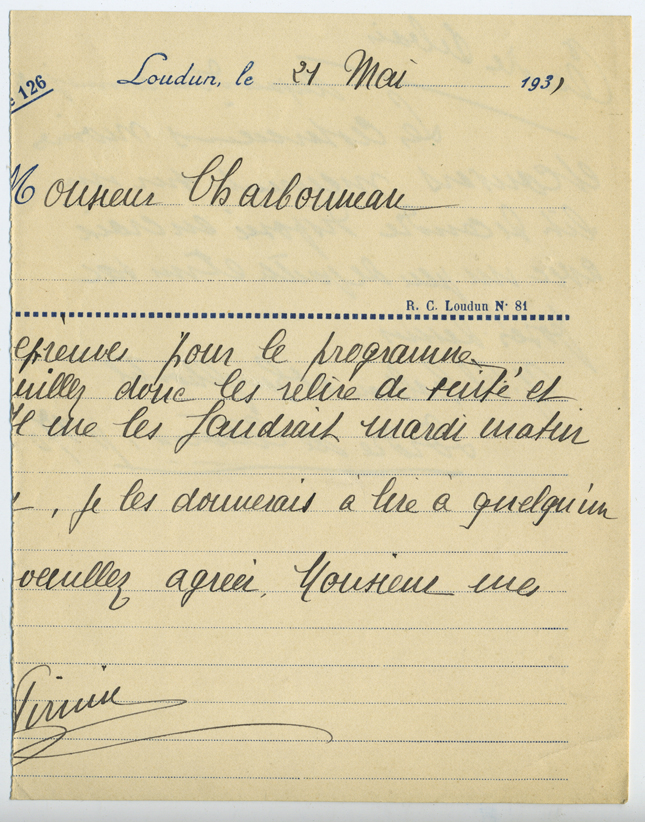 126
Loudun, le 21 Mai 1931
Monsieur Charbonneau
R. C. Loudun N° 81
épreuves pour le programme
uillez donc les relire de suite et
Il me les faudrait mardi matin
, je les donnerais à lire à quelqu'un
veuillez agréer, Monsieur mes
Firmin